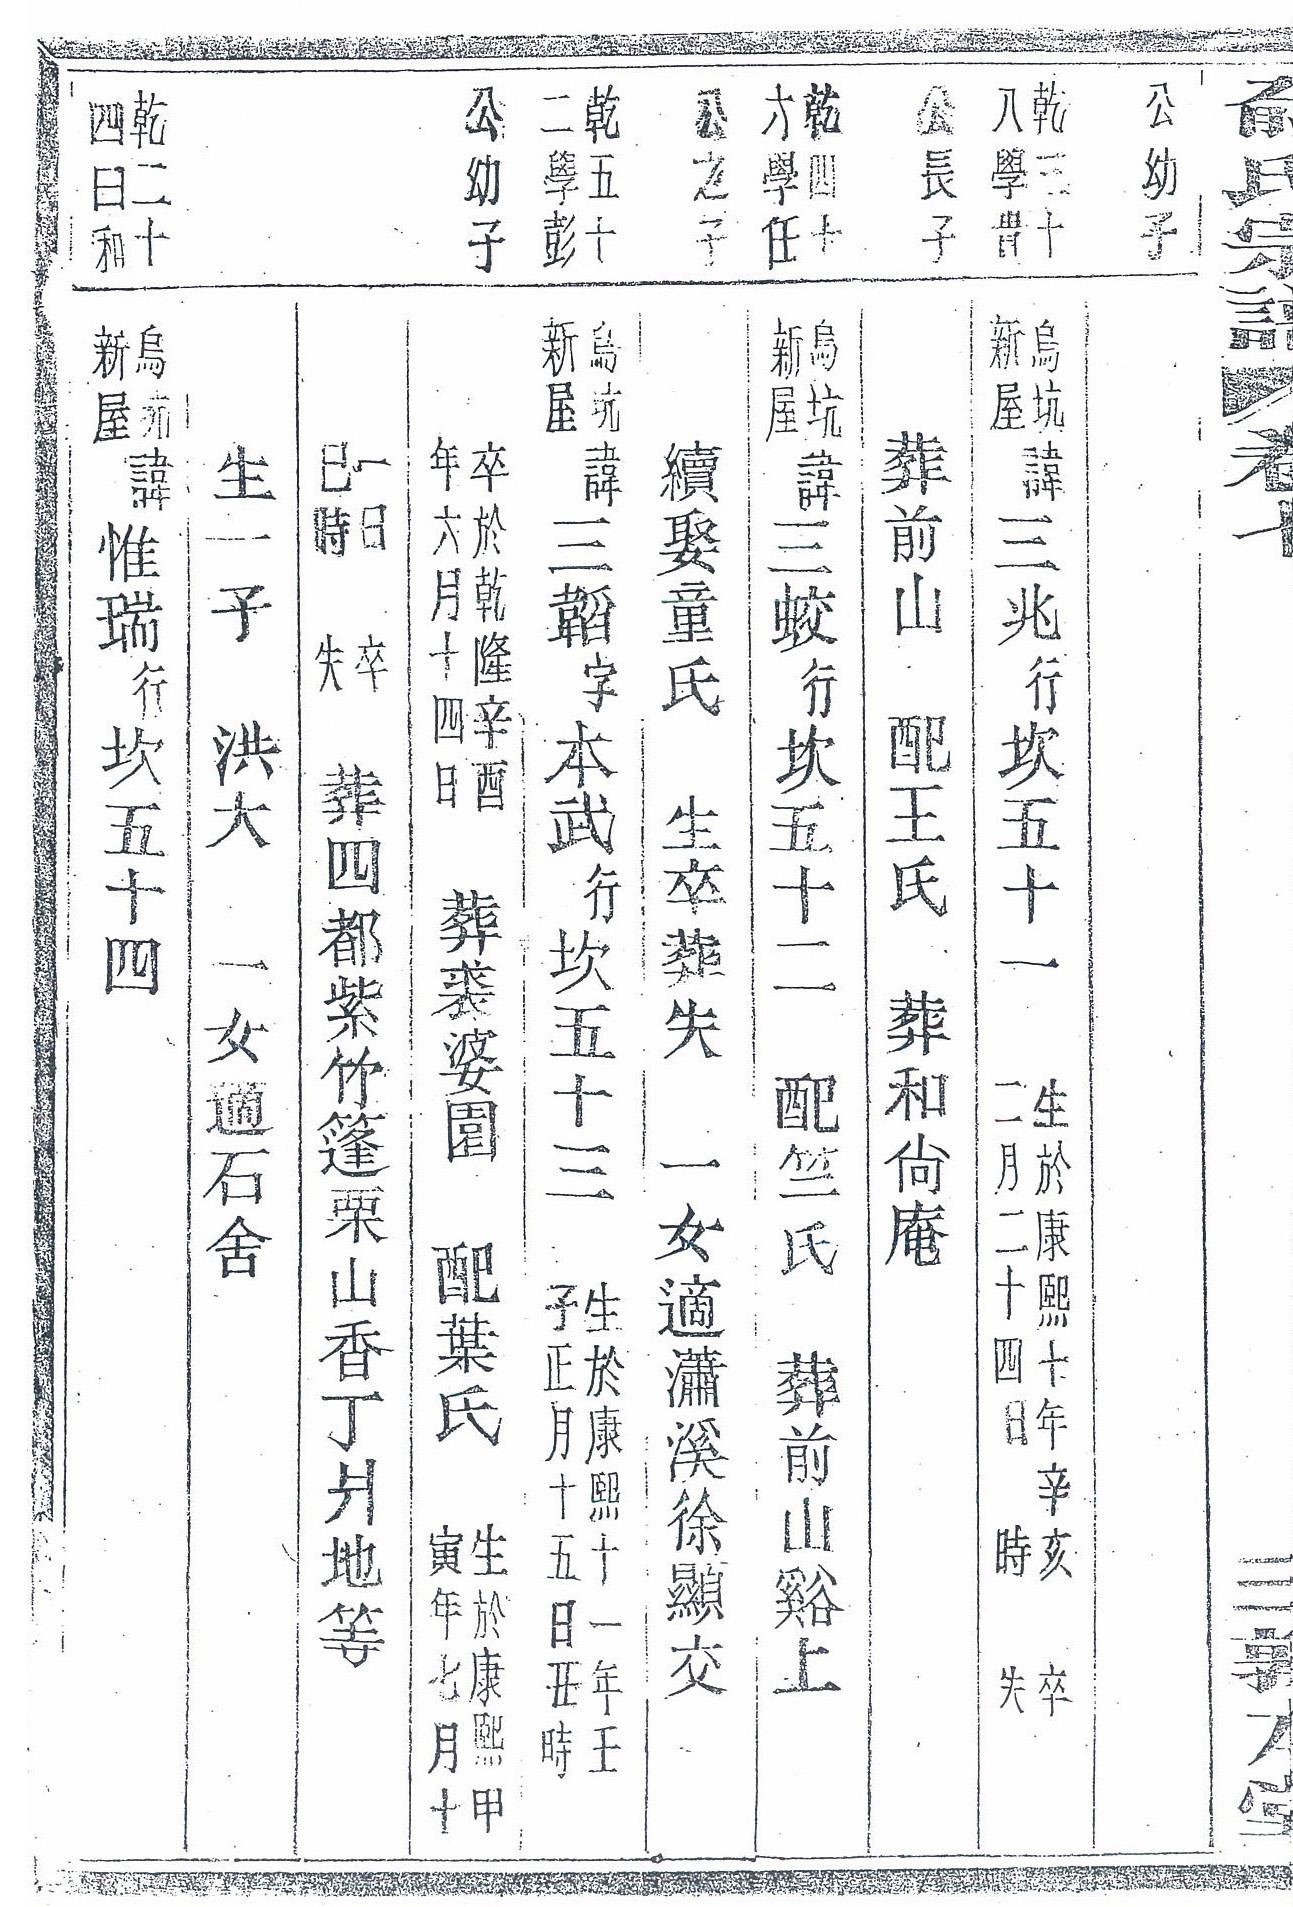 俞氏宗譜 卷七
公幼子
乾三十八學豊
烏坑新屋 諱三兆 行坎五十一 生於康熙十年辛亥二月二十四日 時 卒失
公長子
葬前山 配王氏 葬和尙庵
乾四十六學任
烏坑新屋 諱三蛟 行坎五十二 配竺氏 葬前山谿上
公之子
續娶童氏 生卒葬失 一女適瀟溪徐顯交
乾五十二學彭
烏坑新屋 諱三韜 字本武 行坎五十三 生於康熙十一年壬子正月十五日丑時
公幼子
卒於乾隆辛酉年六月十四日 葬裘婆園 配葉氏 生於康熙甲寅年七月十
一日巳時 卒失 葬四都紫竹篷栗山香丁爿地等
生一子 洪大 一女適石舍
乾二十四曰和
烏坑新屋 諱惟瑞 行坎五十四